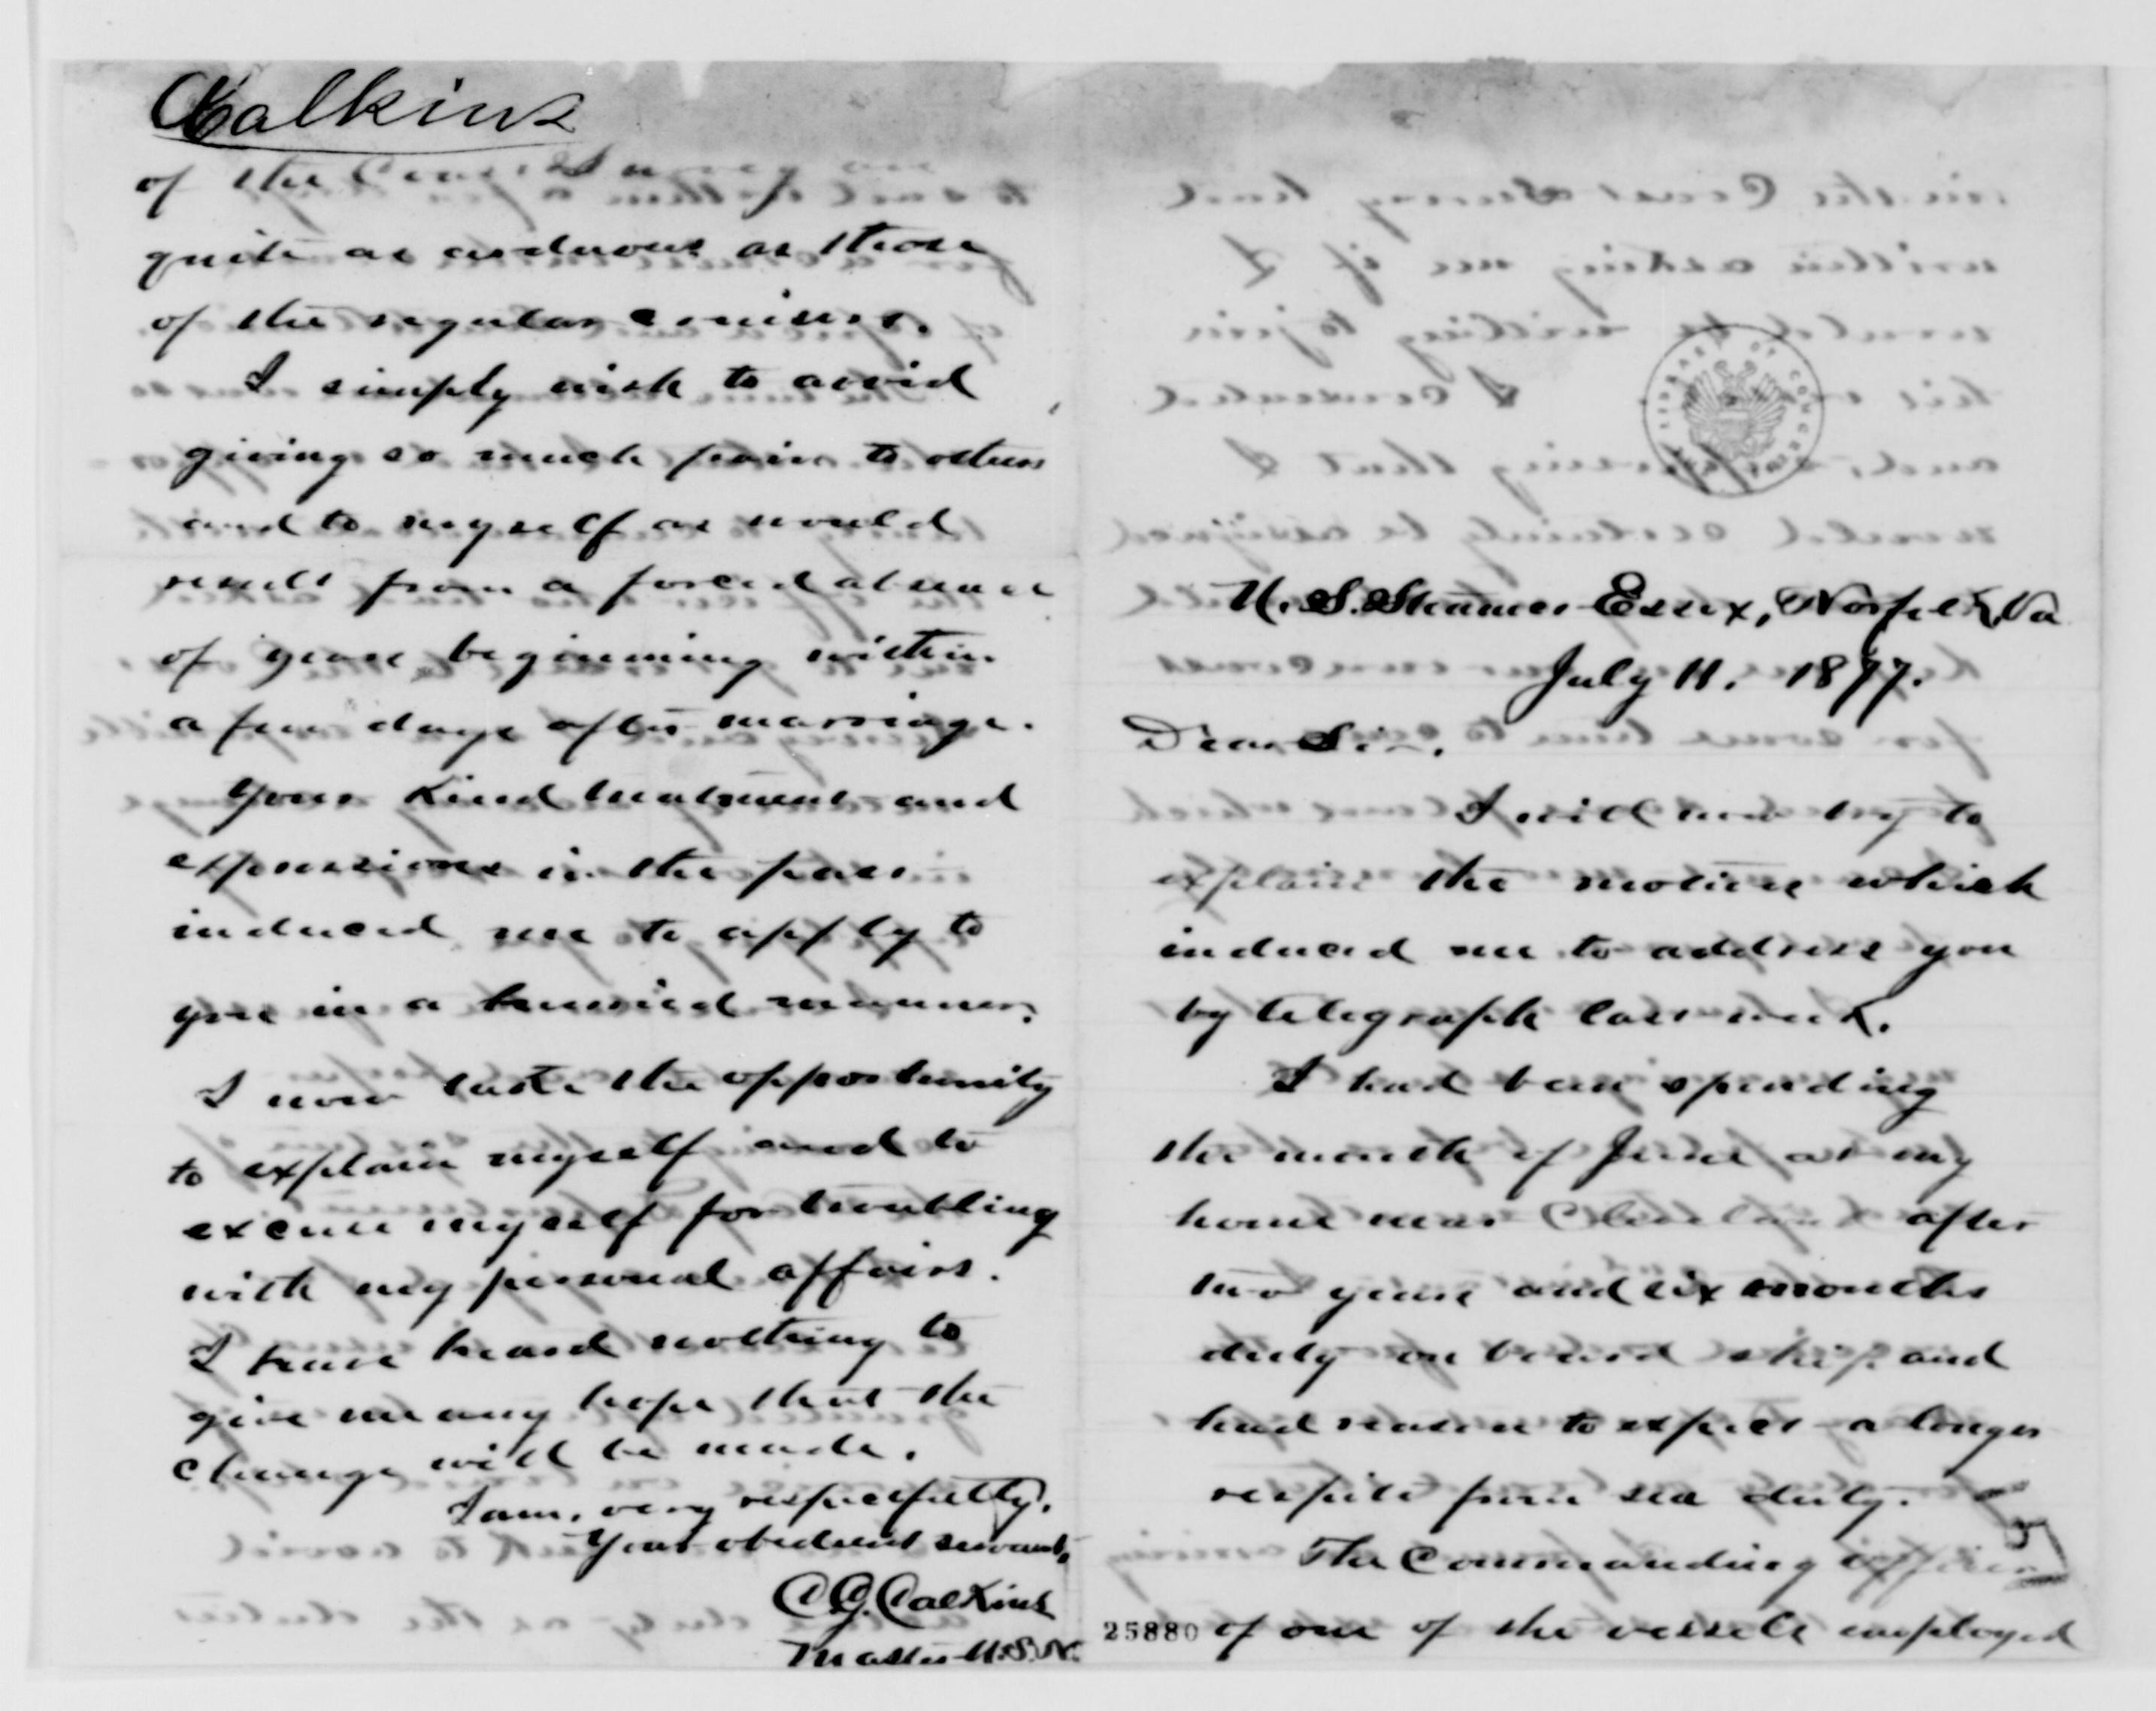 Calkins
of the Coast Survey are
quite as arduous as those
of the regular cruisers.
I simply wish to avoid
giving so much pain to others
and to myself as would
result from a forced absence
of years beginning within
a few days after marriage.
Your kind treatment and
expressions in the past
induced me to apply to
you in a hurried manner.
I now take the opportunity
to explain myself and to
excuse myself for troubling
with my personal affairs.
I have heard nothing to
give me any hope that the
change will be made.
I am, very respectfully,
Your obedient servant,
C G. Calkins
Master U.S.N.
LIBRARY OF CONGRESS
U. S. Steamer Essex, Norfolk, Va
July 11. 1877.
Dear Sir,
I will now try to
explain the motives which
induced me to address you
by telegraph last week.
I had been spending
the month of June at my
home near Cleveland after
two years and six months
duty on board ship and
had reason to expect a longer
respite from sea duty.
The Commanding officer
25880 of one of the vessels employed